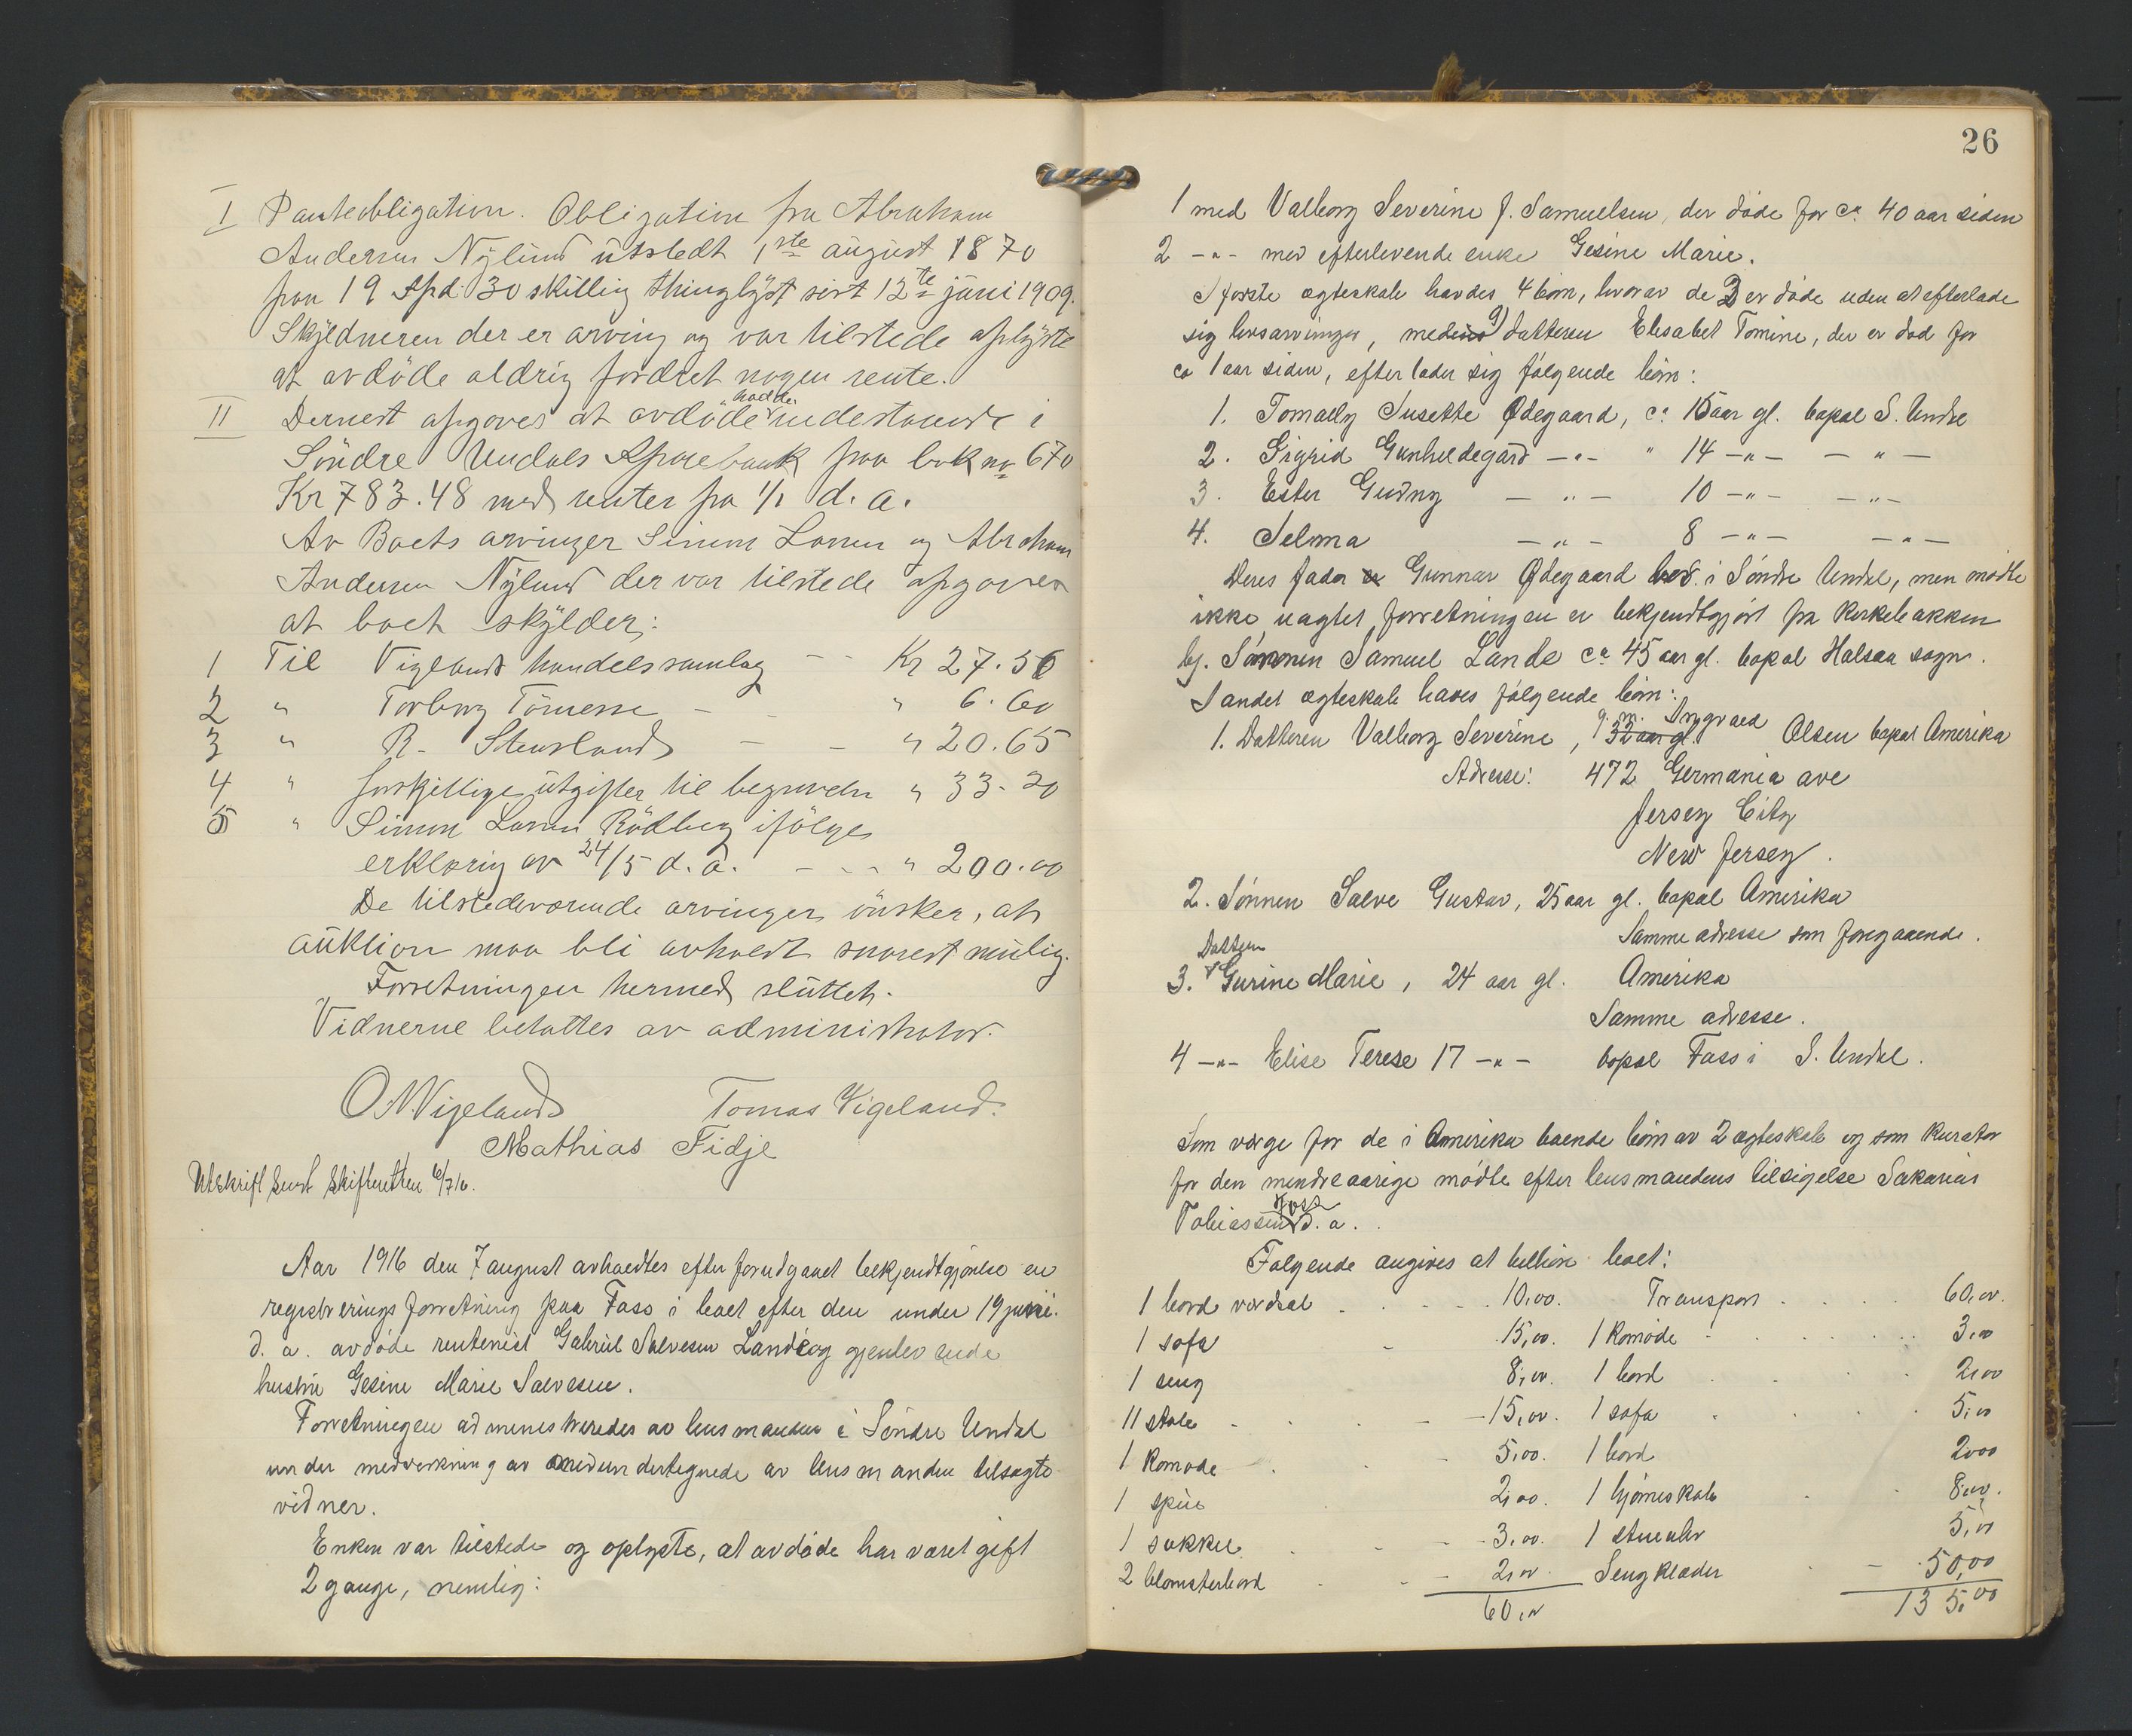 I Panteobligation. Obligation fra Abraham
Andersen Nÿlund ütstedt 1ste august 1870
paa 19 Spd 30 skilling thinglÿst sist 12te jüni 1909.
Skÿldneren der er arving og var tilstede oplÿste
at avdöde aldrig fordret nogen rente.
II Dernest opgoves at avdöde hadde indestaaende i
Söndre Undals Sparebank paa bok no 670
Kr 783.48 med renter fra 1/1 d. a.
Av Boets arvinger Simon Larsen og Abraham
Andersen Nÿlund der var tilstede opgoves
at boet skÿlder:
1 Til Viglands handelssamlag - - Kr 27.50
2 " Torborg Törnesse - - " 6.60
3 " R. Stusland - - " 20.65
4 " forskjellige ütgifter til begravelse " 33-20
5 " Simon Larsen Rödberg ifölge
erklæring av 24/5 d. a. - - - " 200.00
De tilstedeværende arvinger önsker, at
aüktion maa bli avholdt snarest mülig.
Forretningen hermed slüttet.
Vidnerne betaltes av administrator.
O.N. Vigeland Tomas Vigeland.
Mathias Fidje
Utskrift sendt skifteretten 6/7 16.
Aar 1916 den 7 august avholdtes efter forudgaaet bekjendtgjörelse en
registreringsforretning paa Foss i boet efter den under 19 juni
d. a. avdöde rentenist Gabriel Salvesen Lande og gjenlevende
hustru Gesine Marie Salvesen.
Forretningen administreredes av lensmanden i Söndre Undal
under medvirkning av medundertegnede av lensmanden tilsagte
vidner.
Enken var tilstede og oplyste, at avdöde har været gift
2 gange, nemlig:
26
1 med Valborg Severine f. Samuelsen, der döde for ca. 40 aar siden
2 -"- med efterlevende enke Gesine Marie.
I förste ægteskab havdes 4 börn, hvorav de 2 er döde uden at efterlade
sig livsarvinger, medens a) datteren Elisabet Tomine, der er död for
ca 1 aar siden, efterlader sig fölgende börn:
1. Tomaely Susette Ødegaard, ca. 15 aar gl. bopæl S. Undal
2. Sigrid Gunhild Ødegård -"- " 14 -"- - " -
3. Ester Gudny - " - 10 -"- -"-
4. Selma - " - 8 -"- -"-
Deres fader Gunnar Ødegaard bor i Söndre Undal, men mödte
ikke uagtet forretningen er bekjendtgjört fra kirkebakken
b). Sönnen Samuel Lande ca 45 aar gl. bopæl Halsaa sogn.
I andet ægteskab haves fölgende börn:
1. Datteren Valborg Severine, 32 aar gl. g. m. Ingvald Olsen bopæl Amerika
Adresse: 472 Germania ave
Jersey City
New Jersey.
2. Sönnen Salve Gustav, 25 aar gl. bopæl Amerika
Samme adresse som foregaaende.
3. Datteren Gurine Marie, 24 aar gl. Amerika
Samme adresse.
4 -"- Elise Terese 17 -"- bopæl Foss i S. Undal.
Som værge for de i Amerika boende börn av 2 ægteskab og som kurator
for den mindreaarige mödte efter lensmandens tilsigelse Sakarias
Tobiassen Foss d. a.
Fölgende angives at tilhöre boet:
1 bord vordsat . . . . 10,00. Transport . . . . 60,00.
1 sofa - 15,00. 1 komode - . . . . 3,00
1 seng 8,00. 1 bord . . . 2,00
11 stole - . . - 15,00. 1 sofa . . . 5,00
1 komode . . - 5,00. 1 bord 2,00
1 speil . 2,00. 1 hjörneskab . . 8,00.
1 sokkel . - - 3,00. 1 stueuhr 5,00
2 blomsterbord . - - 2,00. Sengklæder . - 50,00
60,00 135,00